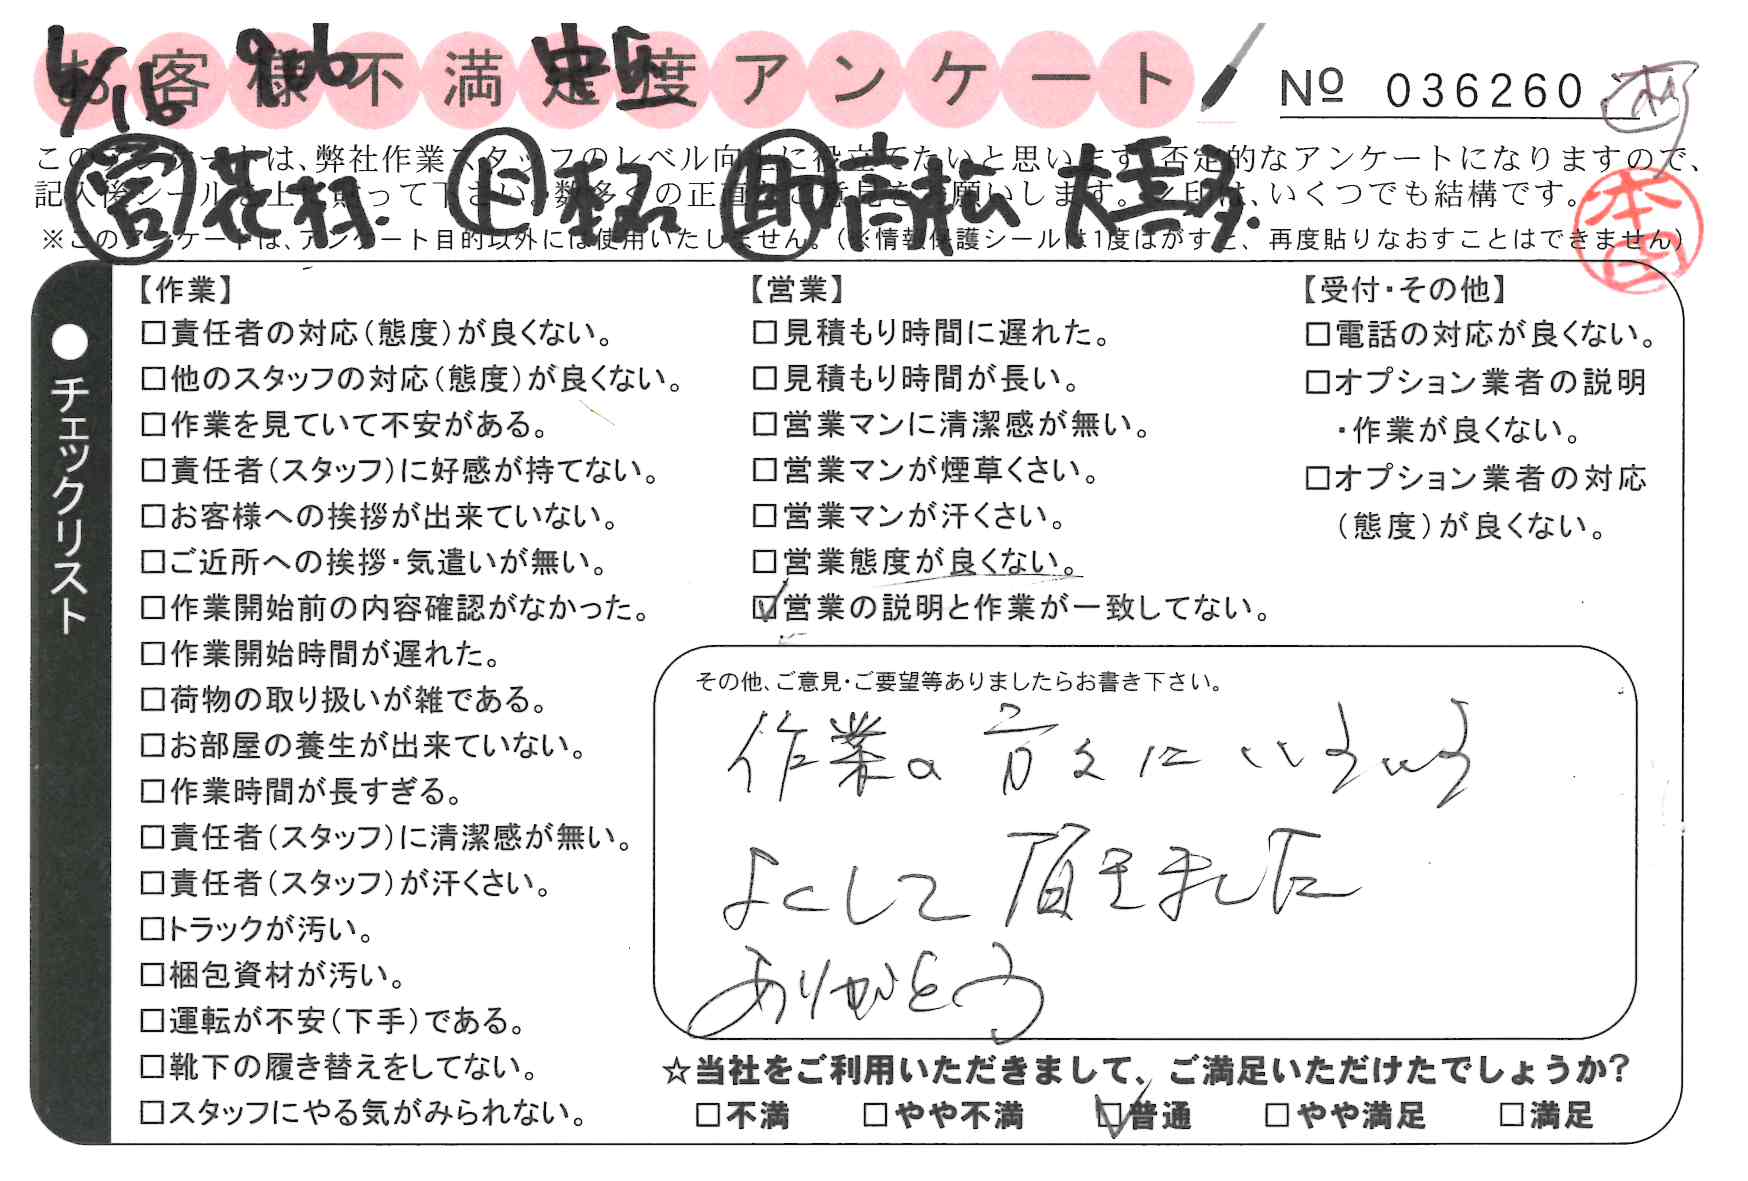 お客様不満足度アンケート
No 036260
6/16 906
このアンケートは、弊社作業スタッフのレベル向上に役立てたいと思います。否定的なアンケートになりますので、
記入後シールを上に貼って下さい。数多くの正直なご意見をお願いします。レ印は、いくつでも結構です。
※このアンケートは、アンケート目的以外には使用いたしません。(※情報保護シールは1度はがすと、再度貼りなおすことはできません)
営 花村 上 助 高松
●チェックリスト
【作業】
□責任者の対応(態度)が良くない。
□他のスタッフの対応(態度)が良くない。
□作業を見ていて不安がある。
□責任者(スタッフ)に好感が持てない。
□お客様への挨拶が出来ていない。
□ご近所への挨拶・気遣いが無い。
□作業開始前の内容確認がなかった。
□作業開始時間が遅れた。
□荷物の取り扱いが雑である。
□お部屋の養生が出来ていない。
□作業時間が長すぎる。
□責任者(スタッフ)に清潔感が無い。
□責任者(スタッフ)が汗くさい。
□トラックが汚い。
□梱包資材が汚い。
□運転が不安(下手)である。
□靴下の履き替えをしてない。
□スタッフにやる気がみられない。
【営業】
□見積もり時間に遅れた。
□見積もり時間が長い。
□営業マンに清潔感が無い。
□営業マンが煙草くさい。
□営業マンが汗くさい。
□営業態度が良くない。
☑営業の説明と作業が一致してない。
【受付・その他】
□電話の対応が良くない。
□オプション業者の説明
・作業が良くない。
□オプション業者の対応
(態度)が良くない。
その他、ご意見・ご要望等ありましたらお書き下さい。
作業の方々にいろいろ
よくして頂きました
ありがとう
☆当社をご利用いただきまして、ご満足いただけたでしょうか?
□不満 □やや不満 ☑普通 □やや満足 □満足